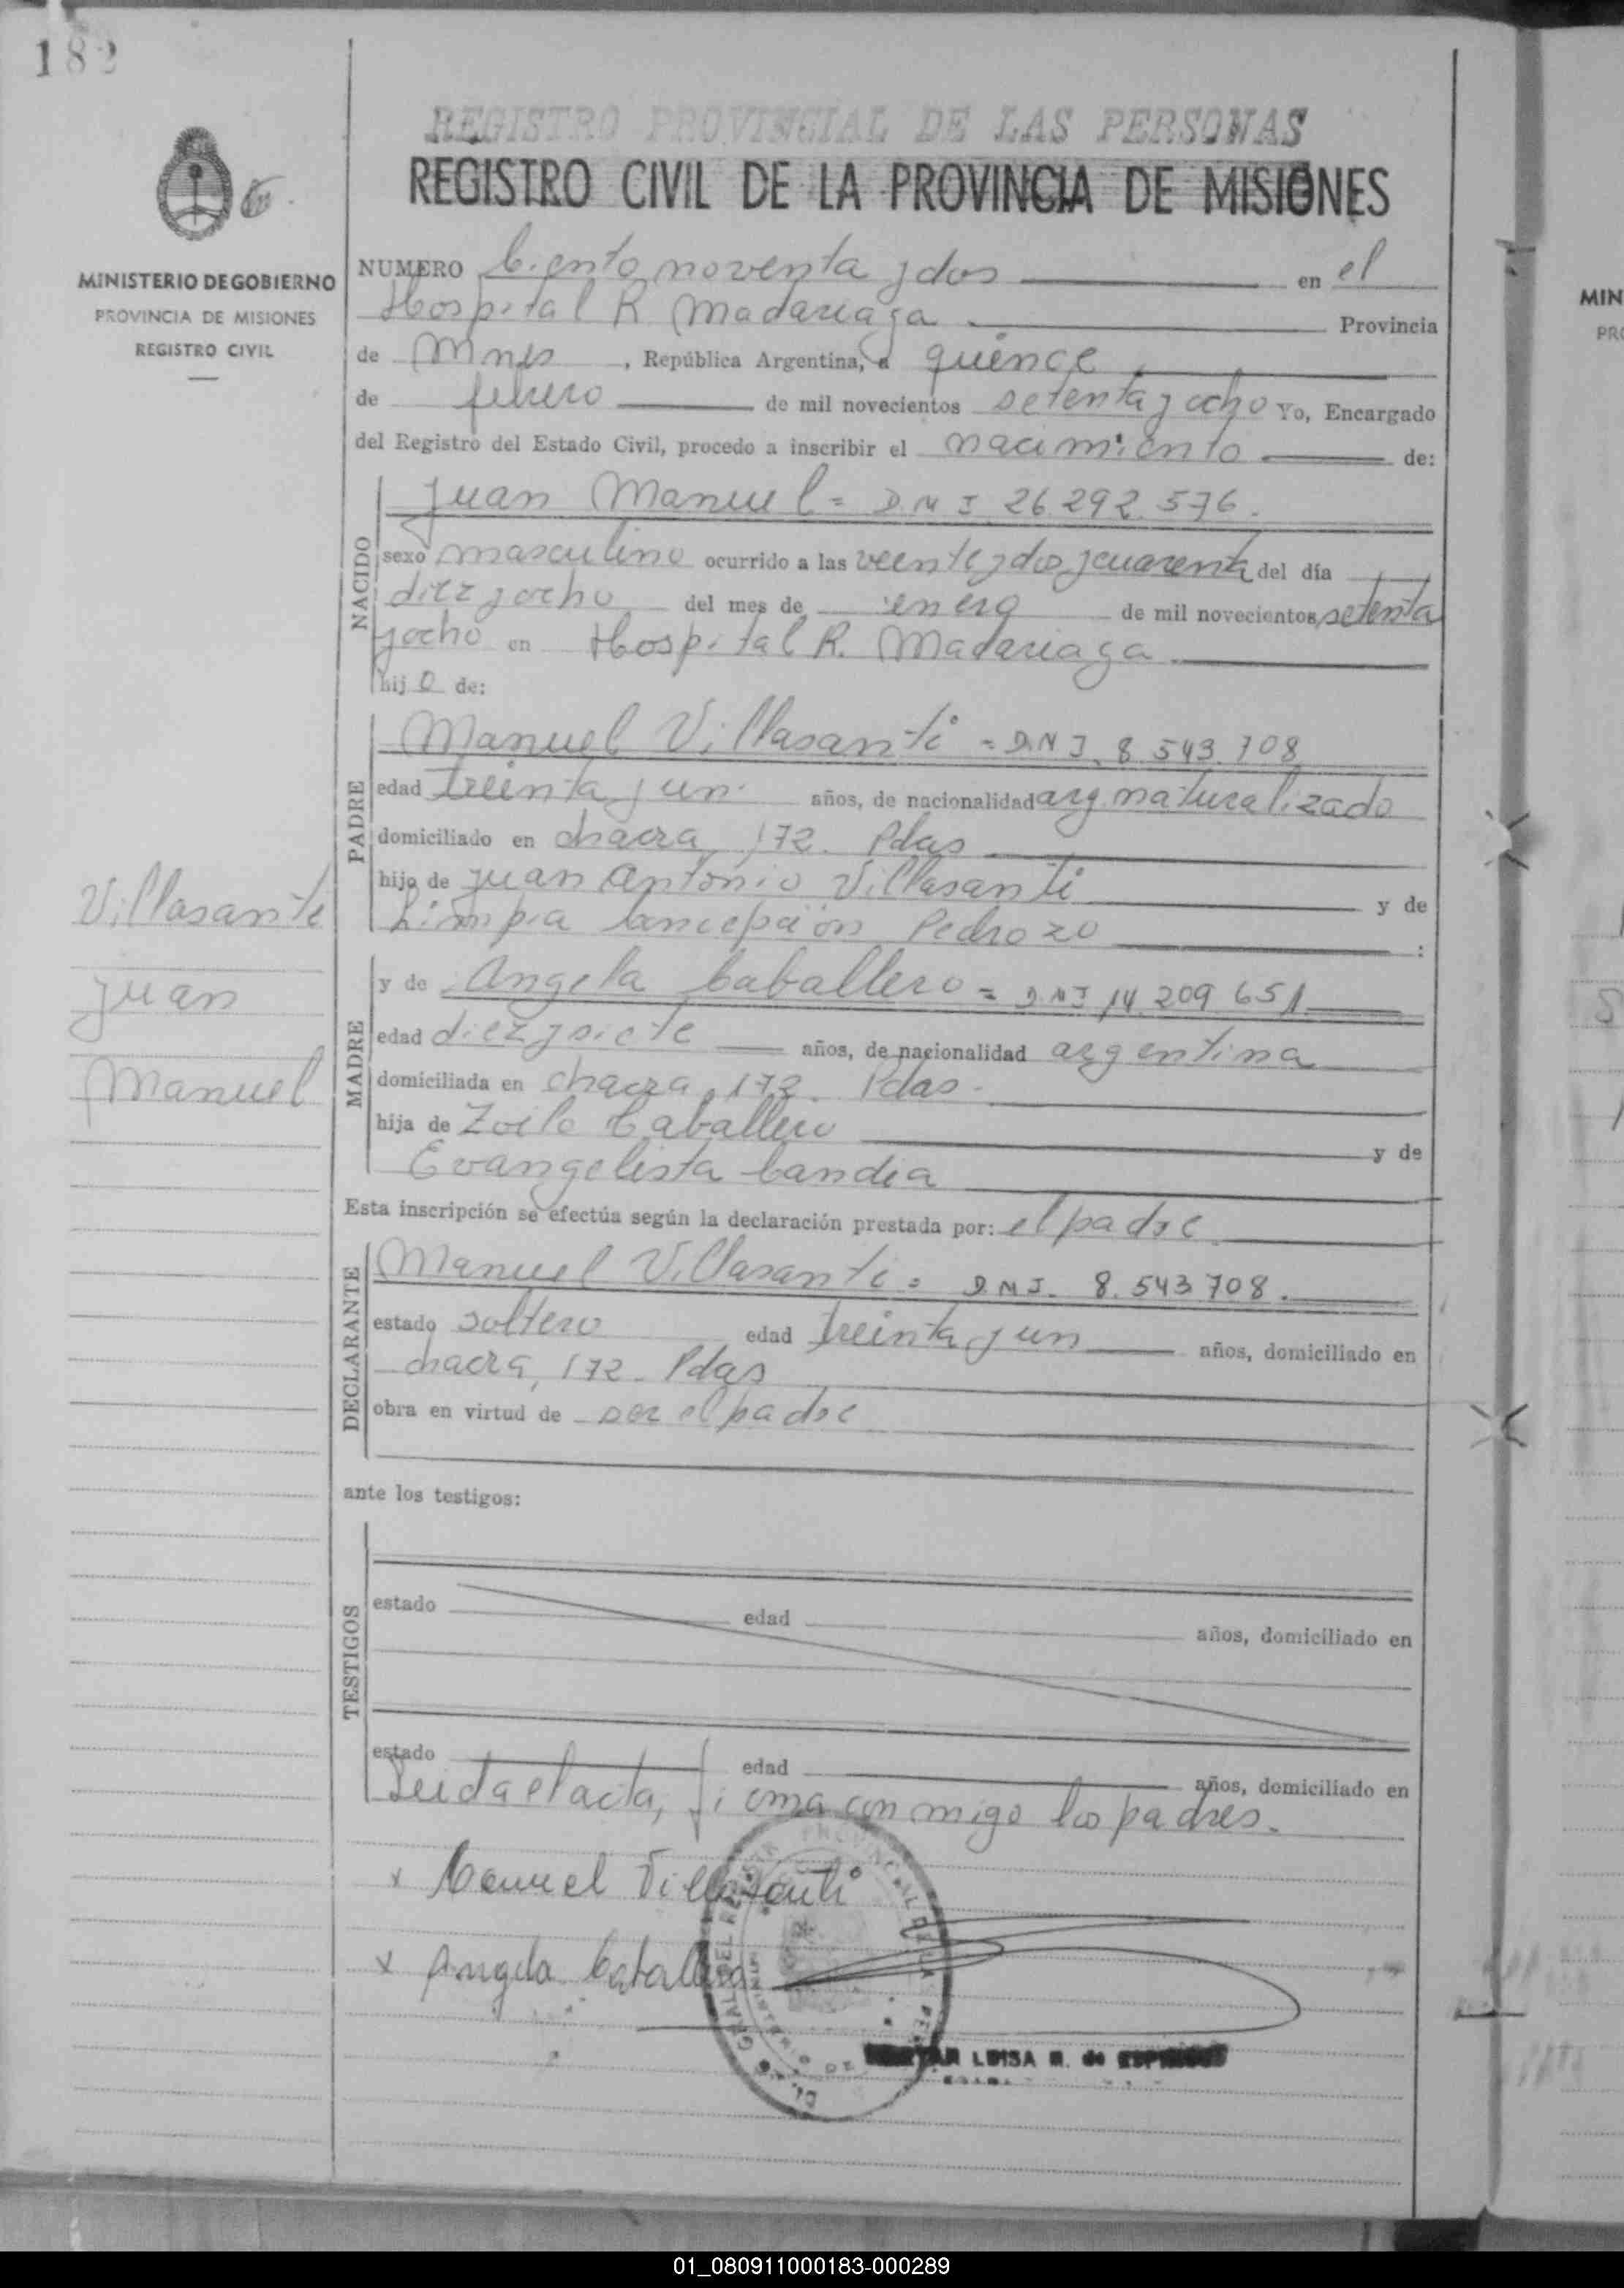 182
REGISTRO PROVINCIAL DE LAS PERSONAS
REGISTRO CIVIL DE LA PROVINCIA DE MISIONES
MINISTERIO DE GOBIERNO
PROVINCIA DE MISIONES
REGISTRO CIVIL
NUMERO Ciento noventa y dos en el
Hospital R. Madariaga Provincia
de Mnes , República Argentina, a quince
de febrero de mil novecientos setenta y ocho Yo, Encargado
del Registro del Estado Civil, procedo a inscribir el nacimiento de:
NACIDO
Juan Manuel = D.N.I. 26.292.576.
sexo masculino ocurrido a las veinte y dos y cuarenta del día
diez y ocho del mes de enero de mil novecientos setenta
y ocho en Hospital R. Madariaga
hijo de:
PADRE
Manuel Villasanti = D.N.I. 8.543.708
edad treinta y un años, de nacionalidad arg. naturalizado
domiciliado en chacra 172. Pdas
hijo de Juan Antonio Villasanti y de
Limpia Concepción Pedrozo :
Villasanti
Juan
Manuel
MADRE
y de Angela Caballero = D.N.I. 14.209.651
edad diez y siete años, de nacionalidad argentina
domiciliada en chacra, 172. Pdas.
hija de Zoilo Caballero y de
Evangelista Candia
Esta inscripción se efectúa según la declaración prestada por: el padre
DECLARANTE
Manuel Villasanti = D.N.I. 8.543.708.
estado soltero edad treinta y un años, domiciliado en
chacra, 172. Pdas
obra en virtud de ser el padre
ante los testigos:
TESTIGOS
estado edad años, domiciliado en
estado edad años, domiciliado en
Leida el acta, firma conmigo los padres.
x Manuel Villasanti
x Angela Caballero
LUISA R. de
01_080911000183-000289